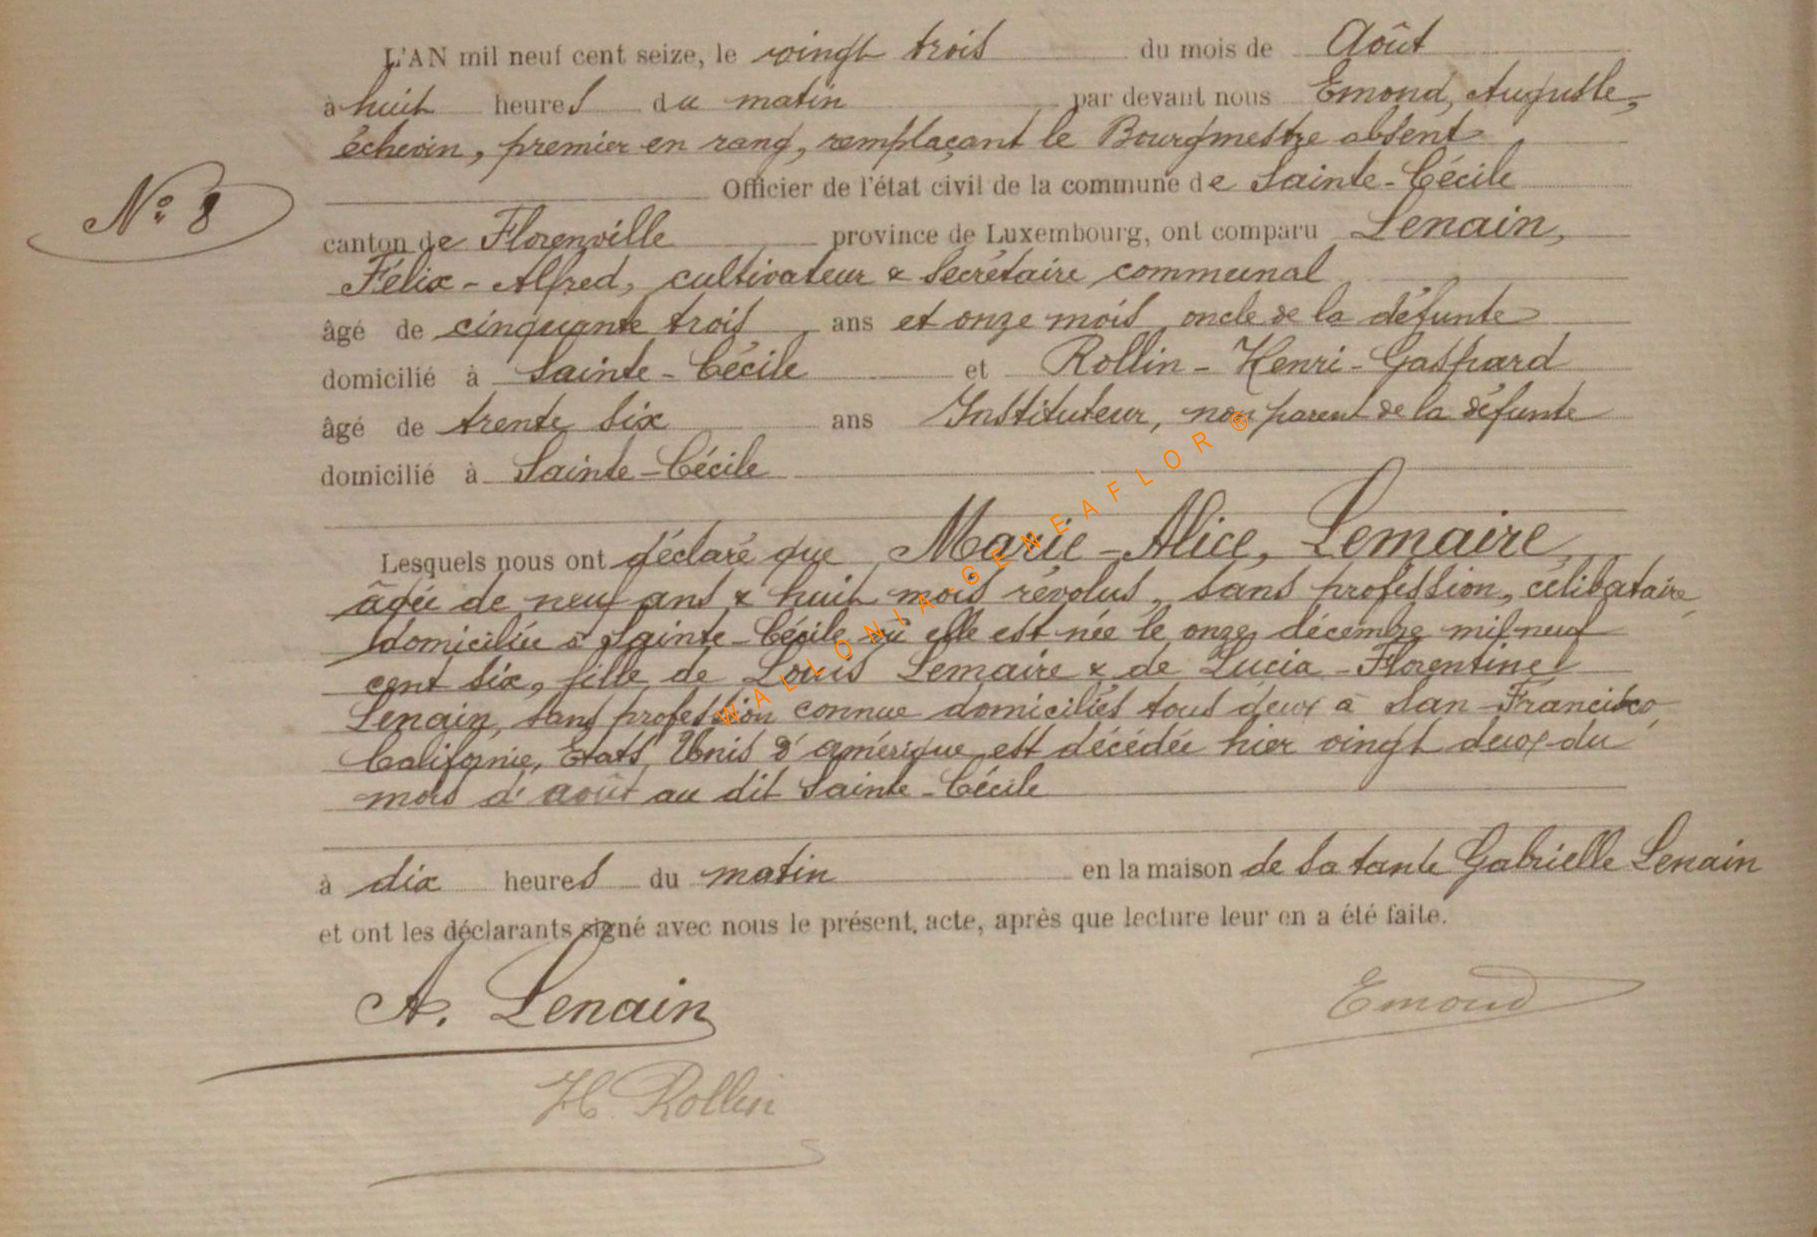 L'AN mil neuf cent seize, le vingt trois du mois de Août
à huit heures du matin par devant nous Emond, Auguste,
échevin, premier en rang, remplaçant le Bourgmestre absent
Officier de l'état civil de la commune de Sainte-Cécile
N° 8
canton de Florenville province de Luxembourg, ont comparu Lenain,
Félix-Alfred, cultivateur & Secrétaire communal
âgé de cinquante trois ans et onze mois, oncle de la défunte
domicilié à Sainte-Cécile et Rollin-Henri-Gaspard
âgé de trente six ans Instituteur, non parent de la défunte
domicilié à Sainte-Cécile
Lesquels nous ont déclaré que Marie-Alice, Lemaire,
âgée de neuf ans & huit mois révolus, sans profession, célibataire,
domiciliée à Sainte-Cécile où elle est née le onze décembre mil neuf
cent six, fille de Louis Lemaire & de Lucia-Florentine
Lenain, sans profession connue domiciliés tous deux à San-Francisco,
Californie, Etats, Unis d'amérique est décédée hier vingt deux du
mois d'août au dit Sainte-Cécile
à dix heures du matin en la maison de sa tante Gabrielle Lenain
et ont les déclarants signé avec nous le présent, acte, après que lecture leur en a été faite.
A. Lenain
Emond
H. Rollin
WALLONIA-GENEAFLOR ®